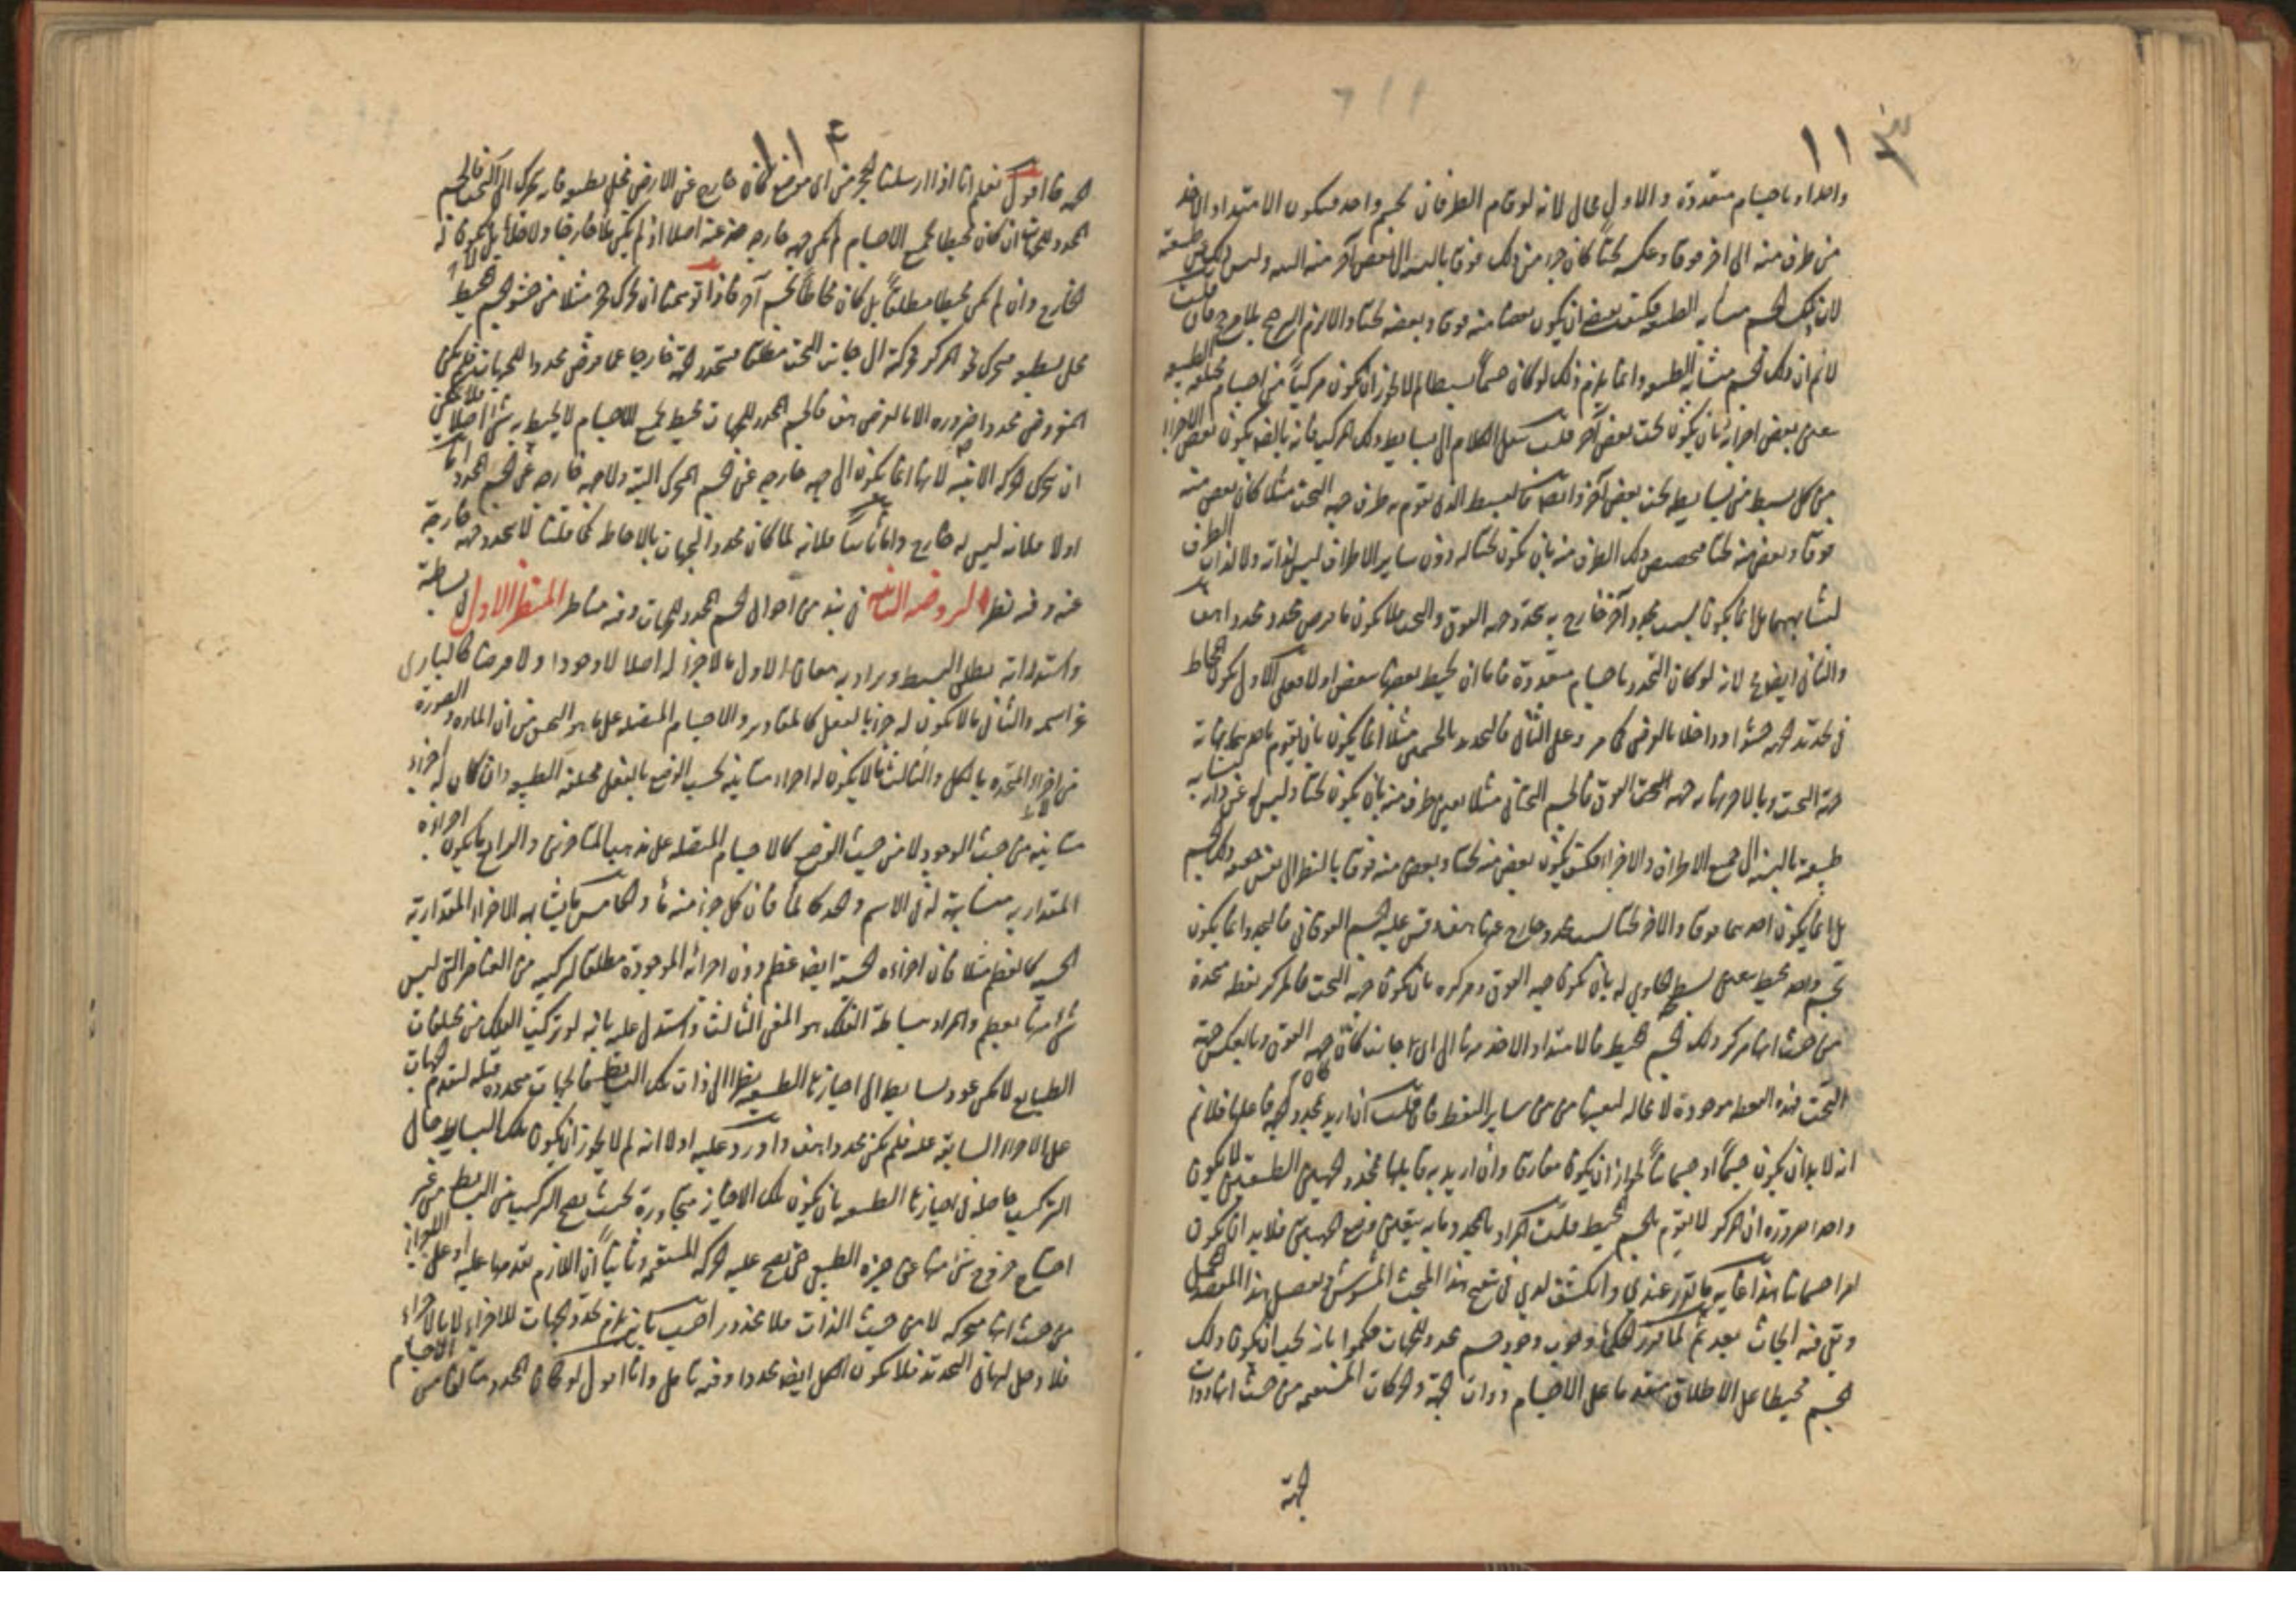 ١١٣
واحدا و باجسام متعددة والاول محال لانه لو قام الطرفان بجسم واحد فيكون الامتداد الاخذ
من طرف منه الى اخر فوقا وعكسه تحتا كان جزء من ذلك فوقا بالنسبة الى بعض آخر منه وليس كذلك
لان ذلك الجسم متشابه الطبيعة بعضا منه فوقا وبعضه تحتا والا لزم الترجيح بلا مرجح فان قلت
لانم ان ذلك الجسم متشابه الطبيعة وانما يلزم ذلك لو كان جسماً بسيطا لم لا يجوز ان يكون مركباً من اجسام مختلفة الطبيعة
بعض اجزائه بان يكون تحت بعض آخر قلت ننقل الكلام الى بسايط ذلك المركب فانه يكون بعض الاجزاء
من كل بسيط من بسايطه تحت بعض آخر وايضا فالبسيط الذي يقوم به طرف جهة التحت مثلا كان بعض منه
فوقا وبعض منه تحتا فتخصيص ذلك الطرف منه بان يكون تحتا له دون ساير الاطراف ليس لذاته ولا لذات الطرف
لتشابههما بل انما يكون بسبب محدد آخر خارج به يتحدد جهة الفوق والتحت فلا يكون ما فرض محددا محددا هف
والثاني ايضا لانه لو كان التحدد باجسام متعددة فاما ان يحيط بعضها ببعض او لا فعلى الاول يكون المحاط
في تحديد الجهة حشوا داخلا بالعرض كما مر وعلى الثاني فالتحدد بالجسمين مثلا انما يكون بان يقوم باحدهما نهاية
جهة التحت وبالاخر نهاية جهة الفوق فالجسم التحتاني مثلا يعين طرف منه بان يكون تحتا وليس له عن ذاته
طبيعة بالنسبة الى جميع الاطراف والاجزاء فكيف يكون بعض منه تحتا وبعض منه فوقا بالنظر الى نفس ذلك الجسم
بل انما يكون احدهما فوقا والاخر تحتا بسبب محدد خارج عنهما هف وقس عليه الجسم الفوقاني فالمحدد انما يكون
بجسم واحد محيط يعين بسطحه الحاوي له بان يكون جهة الفوق ومركزه بان يكون جهة التحت فالمركز نقطة متحددة
من حيث انها مركز ذلك الجسم المحيط فالامتداد الاخذ منها الى اي جانب كان جهة الفوق وبالعكس جهة
التحت فهذه النقطة موجودة لا محالة من بين ساير النقط فان قلت ان اريد بمحدد الجهة فاعلها فلا نم
انه لا بد ان يكون جسماً او جسمانياً لجواز ان يكون مفارقا وان اريد به قابلها فمحدد الجهتين الطبيعيتين لا يكون
واحدا ضرورة ان المركز لا يقوم بالجسم المحيط قلت المراد بالمحدد ما به يتعين وضع الجهتين فلا بد ان يكون
امرا جسمانيا هذا غاية ما تقرر عندي وانكشف لدي في تنقيح هذا المبحث المشوش وتفصيل هذا المقصد المجمل
وبقي فيه ابحاث بعد ثم لما تقرر الحكماء وجوب وجود جسم محدد للجهات حكموا بانه يجب ان يكون ذلك
الجسم محيطا على الاطلاق متقدما على الاجسام ذوات الجهة والحركات المستقيمة من حيث انها ذوات
الجهة
١١٤
الجهة فاقول نعلم انا اذا ارسلنا الحجر من اي موضع كان خارج عن الارض فخلي بطبعه فانه يتحرك الى التحت فالجسم
المحدد للجهات ان كان محيطا بجميع الاجسام لم يكن جهة خارجة عنه اصلا اذ لم يكن هنا خارجا ولا خلأ بل يكون له
الخارج وان لم يكن محيطا مطلقاً بل كان محاطاً بجسم آخر فاذا توهمنا ان تحرك حجر مثلا من حشو الجسم المحيط
مخلى بطبعه فيتحرك نحو المركز حركة الى جانب التحت مطلقا فيتحدد جهة خارجا عما فرض محددا للجهات فلم يكن
المفروض محددا ضرورة الا بالعرض هف فالجسم المحدد للجهات محيط بجميع الاجسام لا يحيط به شئ اصلا فلا يمكن
ان يتحرك الحركة الاينية لانها انما يكون الى جهة خارجة عن الجسم المتحرك البتة ولا جهة خارجة عن الجسم المحدد اما
اولا فلانه ليس له خارج واما ثانيا فلانه لما كان محدد الجهات بالاحاطة كما قلنا لا يتحدد جهة خارجة
عنه وفيه نظر الروضة الثانية في نبذ من احوال الجسم المحدد للجهات وفيه مناظر المنظر الاول في بساطته
واستدارته يطلق البسيط ويراد به معان الاول ما لا جزء له اصلا لا وجودا ولا فرضا كالباري
عز اسمه والثاني ما لا يكون له جزء بالفعل كالمقادير والاجسام المتصلة على ما هو التحقيق من ان المادة والصورة
من اجزاء المتحدة بالكل والثالث ما لا يكون له اجزاء متباينة بحسب الوضع بالفعل مختلفة الطبيعة وان كان له اجزاء
متباينة من حيث الوجود لا من حيث الوضع كالاجسام المتصلة على مذهب المتأخرين والرابع ما يكون اجزاؤه
المقدارية مشابهة له في الاسم والحد كالماء فان كل جزء منه ماء والخامس ما يشابهه الاجزاء المقدارية
الحسية كالعظم مثلا فان اجزاءه الحسية ايضا عظم دون اجزائه الموجودة مطلقا لتركبه من العناصر التي ليس
شئ منها بعظم والمراد ببساطة الفلك هو المعنى الثالث واستدل عليه بانه لو تركب الفلك من مختلفات
الطبايع لامكن عود بسايطه الى احيازها الطبيعية نظرا الى ذات تلك البسايط فالجهات متحددة قبله لتقدم الجهات
على الاجزاء السابقة عليه فلم يكن محددا هف واورد عليه اولا انه لم لا يجوز ان يكون تلك البسايط حال
التركيب حاصلة في احيازها الطبيعية بان يكون تلك الاحياز متجاورة بحيث يصح التركيب من البسايط من غير
احتياج خروج شئ منها عن حيزه الطبيعي حتى يصح عليه الحركة المستقيمة وثانياً ان اللازم تقدمها عليه او على اجزائه
من حيث انها متحركة لا من حيث الذات فلا محذور اجيب بانه يلزم تحدد الجهات للاجزاء لا بالاجزاء
فلا دخل لها في التحديد فلا يكون الكل ايضا محددا وفيه تأمل وانا اقول لو كان المحدد متألفا من الاجسام